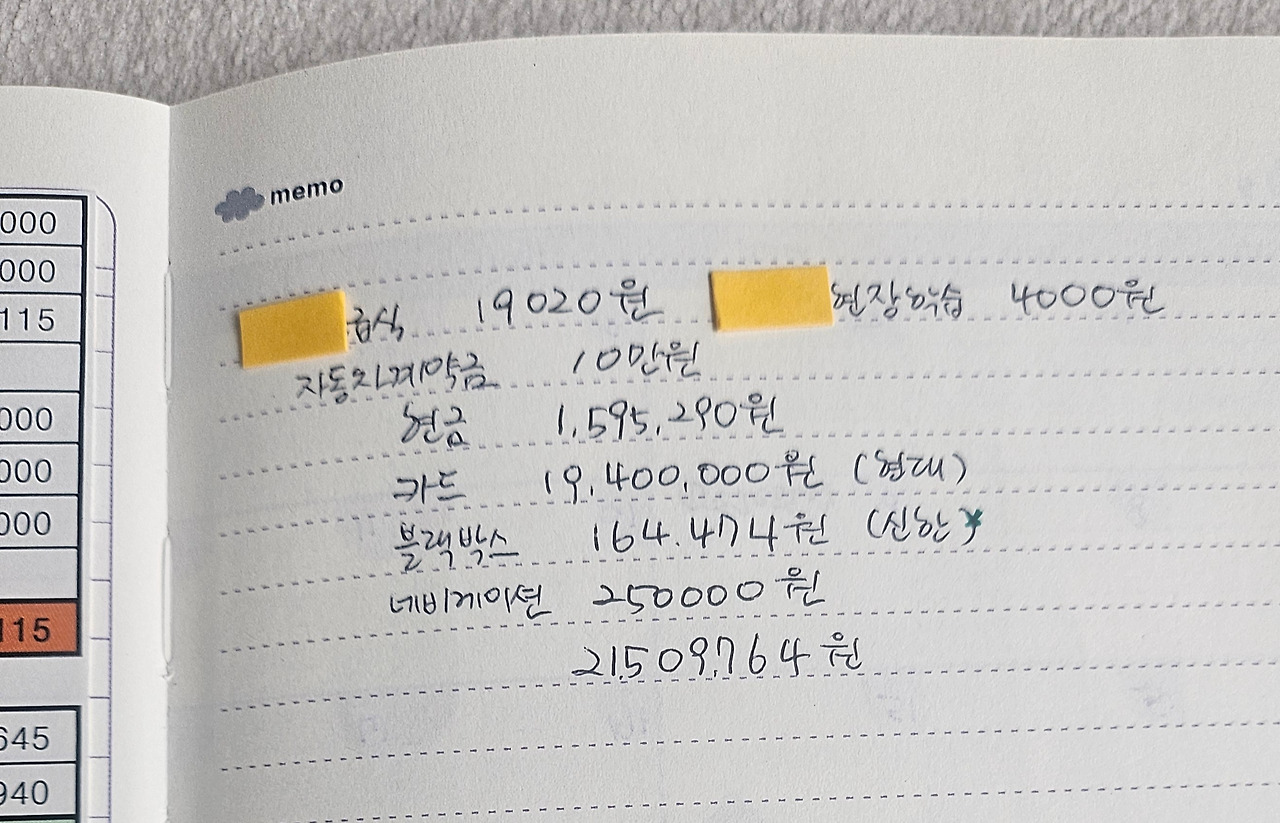 000
000
115
000
000
000
115
645
940
memo
급식 19020원 현장학습 4000원
자동차계약금 10만원
현금 1,595,290원
카드 19,400,000원 (현대)
블랙박스 164.474원 (신한)*
네비게이션 250000원
21,509,764원